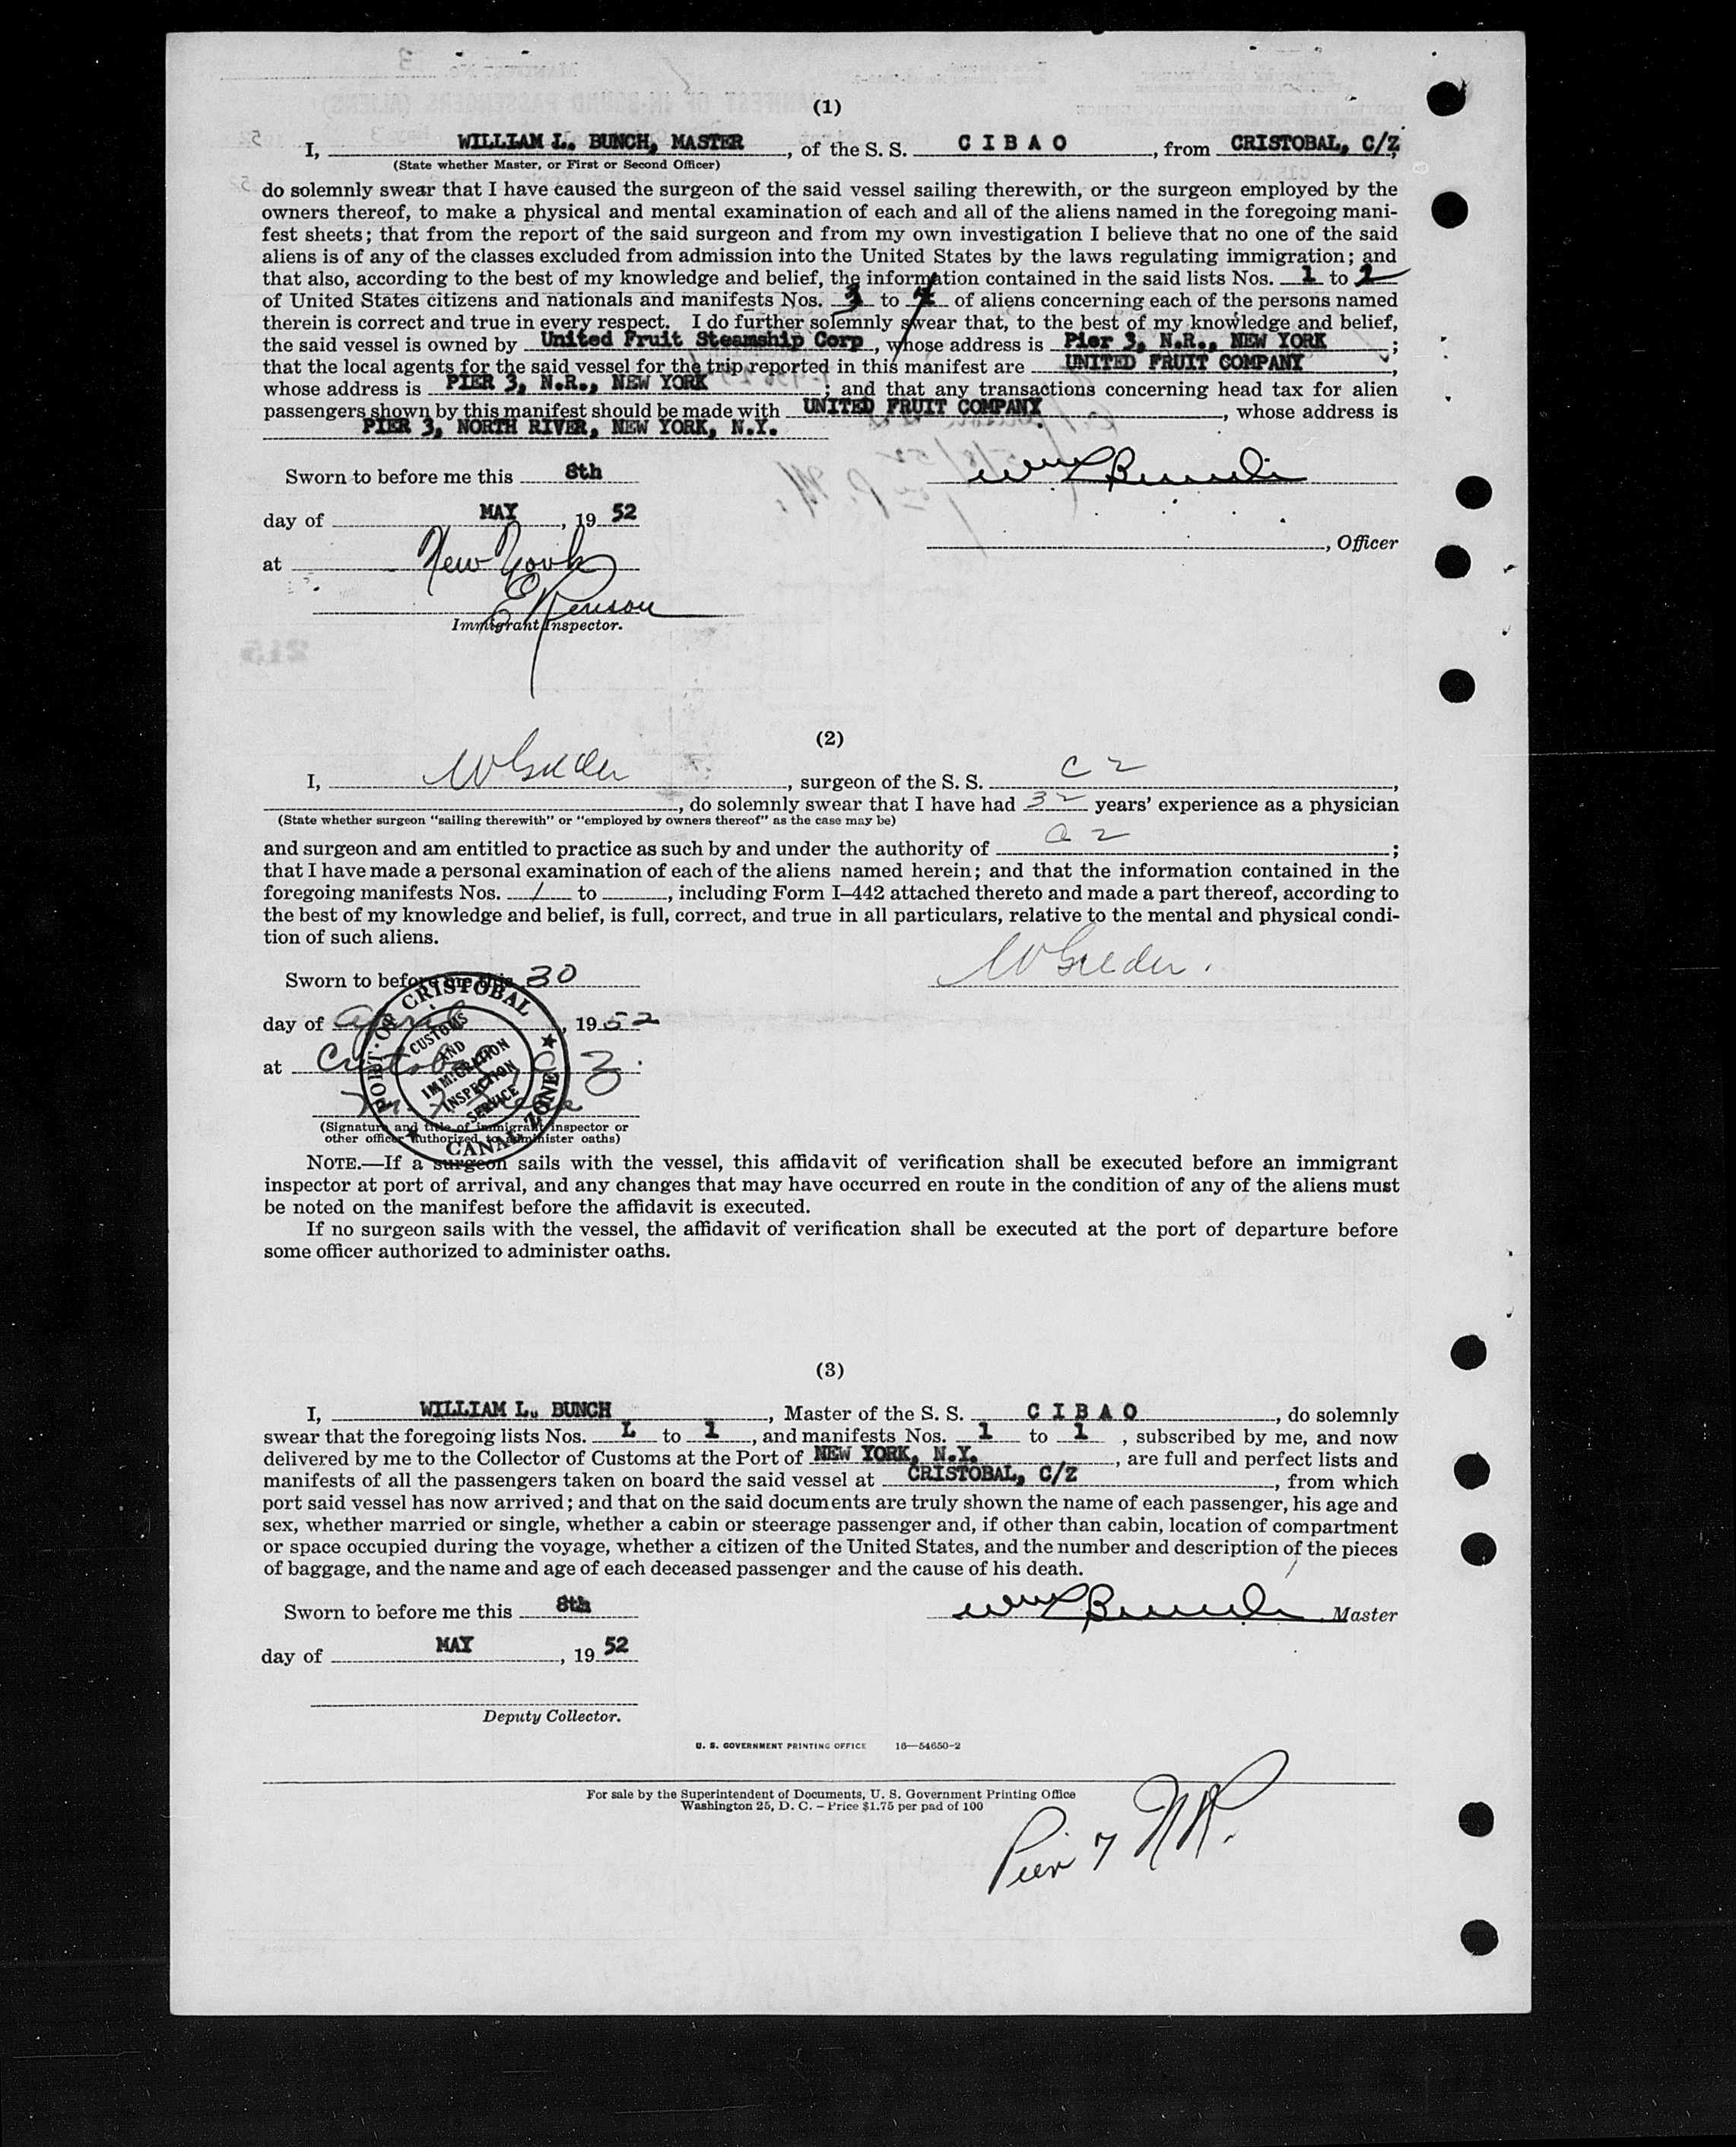 (1)
I, WILLIAM L. BUNCH, MASTER, of the S. S. C I B A O, from CRISTOBAL, C/Z
(State whether Master, or First or Second Officer)
do solemnly swear that I have caused the surgeon of the said vessel sailing therewith, or the surgeon employed by the
owners thereof, to make a physical and mental examination of each and all of the aliens named in the foregoing mani-
fest sheets; that from the report of the said surgeon and from my own investigation I believe that no one of the said
aliens is of any of the classes excluded from admission into the United States by the laws regulating immigration; and
that also, according to the best of my knowledge and belief, the information contained in the said lists Nos. 1 to 2
of United States citizens and nationals and manifests Nos. 3 to of aliens concerning each of the persons named
therein is correct and true in every respect. I do further solemnly swear that, to the best of my knowledge and belief,
the said vessel is owned by United Fruit Steamship Corp, whose address is Pier 3, N.R., NEW YORK;
that the local agents for the said vessel for the trip reported in this manifest are UNITED FRUIT COMPANY,
whose address is PIER 3, N.R., NEW YORK; and that any transactions concerning head tax for alien
passengers shown by this manifest should be made with UNITED FRUIT COMPANY, whose address is
PIER 3, NORTH RIVER, NEW YORK, N.Y.
Sworn to before me this 8th
Wm L Bunch
day of MAY, 19 52
, Officer
at New York
Immigrant Inspector.
(2)
I, , surgeon of the S. S. C Z,
, do solemnly swear that I have had 32 years' experience as a physician
(State whether surgeon "sailing therewith" or "employed by owners thereof" as the case may be)
and surgeon and am entitled to practice as such by and under the authority of C Z;
that I have made a personal examination of each of the aliens named herein; and that the information contained in the
foregoing manifests Nos. 1 to , including Form I-442 attached thereto and made a part thereof, according to
the best of my knowledge and belief, is full, correct, and true in all particulars, relative to the mental and physical condi-
tion of such aliens.
Sworn to before me this 30
day of April, 19 52
at Cristobal C Z.
PORT OF CRISTOBAL
CUSTOMS
AND
IMMIGRATION
INSPECTION
SERVICE
CANAL ZONE
(Signature and title of immigrant inspector or
other officer authorized to administer oaths)
NOTE.—If a surgeon sails with the vessel, this affidavit of verification shall be executed before an immigrant
inspector at port of arrival, and any changes that may have occurred en route in the condition of any of the aliens must
be noted on the manifest before the affidavit is executed.
If no surgeon sails with the vessel, the affidavit of verification shall be executed at the port of departure before
some officer authorized to administer oaths.
(3)
I, WILLIAM L. BUNCH, Master of the S. S. C I B A O, do solemnly
swear that the foregoing lists Nos. 1 to 1, and manifests Nos. 1 to 1, subscribed by me, and now
delivered by me to the Collector of Customs at the Port of NEW YORK, N.Y., are full and perfect lists and
manifests of all the passengers taken on board the said vessel at CRISTOBAL, C/Z, from which
port said vessel has now arrived; and that on the said documents are truly shown the name of each passenger, his age and
sex, whether married or single, whether a cabin or steerage passenger and, if other than cabin, location of compartment
or space occupied during the voyage, whether a citizen of the United States, and the number and description of the pieces
of baggage, and the name and age of each deceased passenger and the cause of his death.
Sworn to before me this 8th
Wm L Bunch Master
day of MAY, 19 52
Deputy Collector.
U. S. GOVERNMENT PRINTING OFFICE 16—54650-2
For sale by the Superintendent of Documents, U. S. Government Printing Office
Washington 25, D. C. - Price $1.75 per pad of 100
Pier 7 NR.